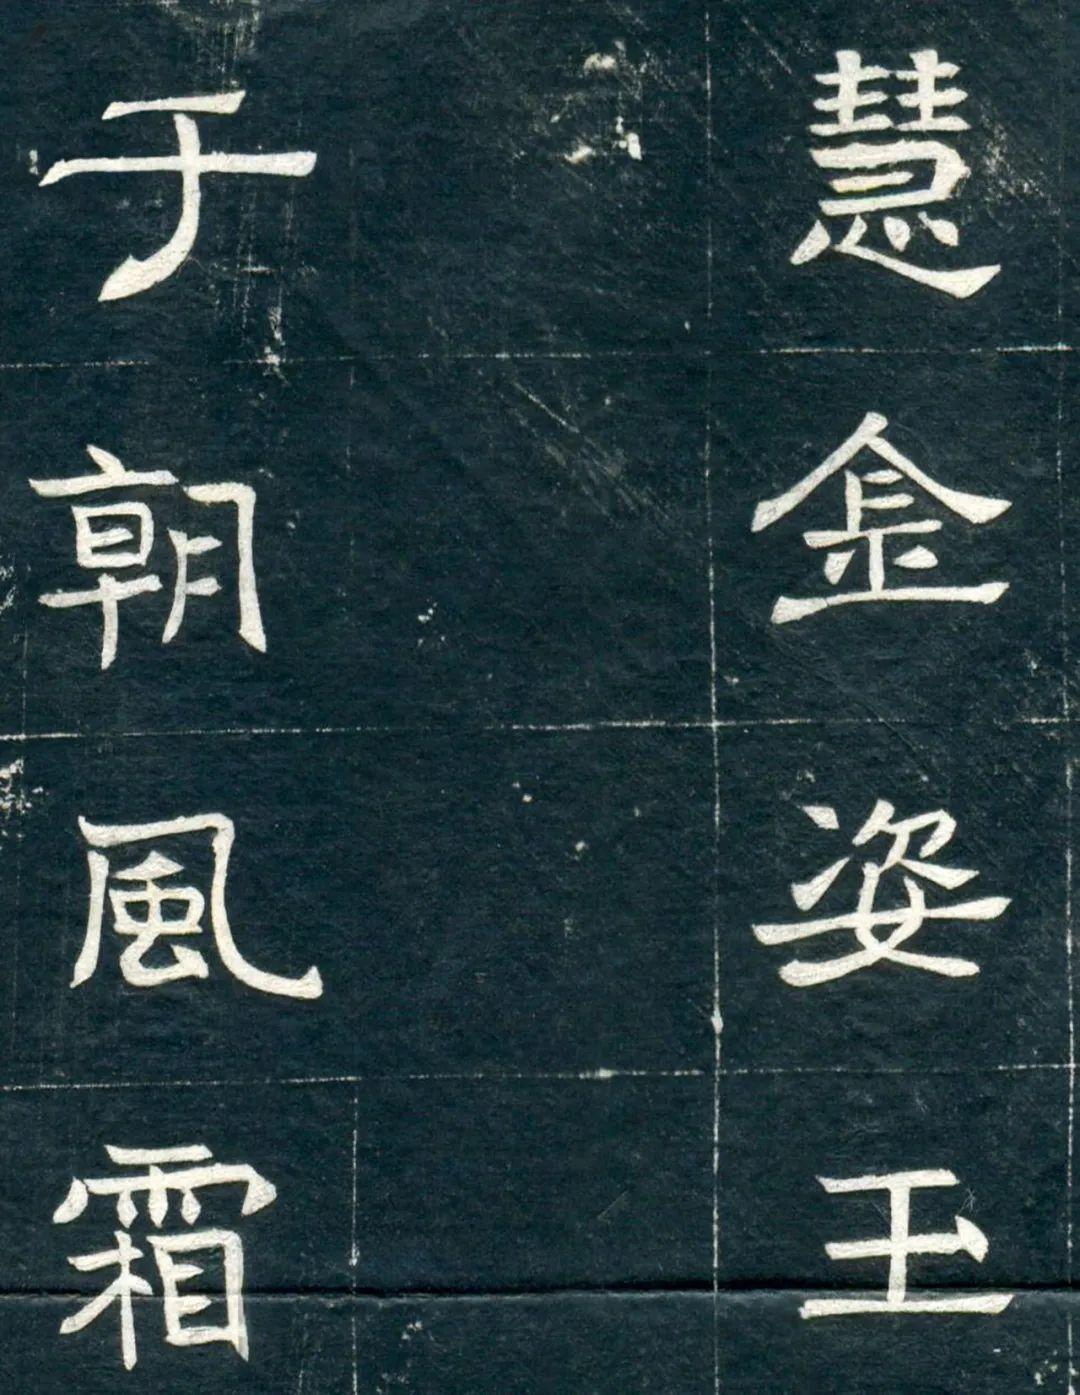 慧金姿玉
于朝風霜